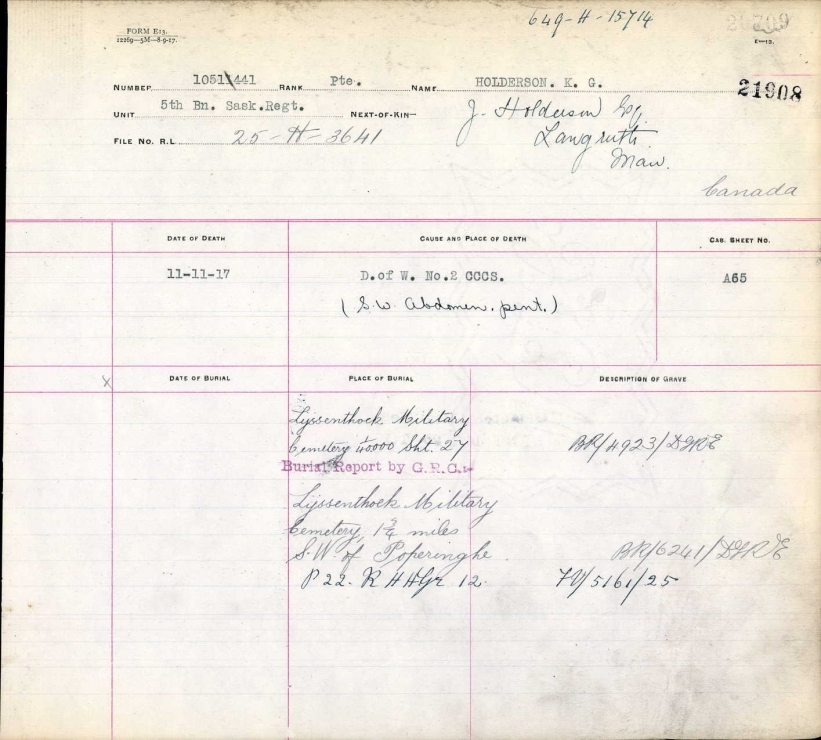 649-H-15714
FORM E13.
12269—5M—8-9-17.
E—13.
NUMBER 10511441 RANK Pte. NAME HOLDERSON. K. G.
21908
UNIT 5th Bn. Sask.Regt. NEXT-OF-KIN— J. Holderson Esq.
FILE NO. R.L. 25-H-3641 Langruth.
Man.
Canada
DATE OF DEATH CAUSE AND PLACE OF DEATH CAS. SHEET NO.
11-11-17 D.of W. No.2 CCCS. A65
(S.W. Abdomen. pent.)
X DATE OF BURIAL PLACE OF BURIAL DESCRIPTION OF GRAVE
Lyssenthoek Military
Cemetery 1/40000 Sht. 27 BR/4923/DGRE
Burial Report by G.R.C.
Lyssenthoek Military
Cemetery, 1¾ miles
S.W. of Poperinghe BR/6241/DGRE
P 22. R HH Gr 12. FV/5161/25